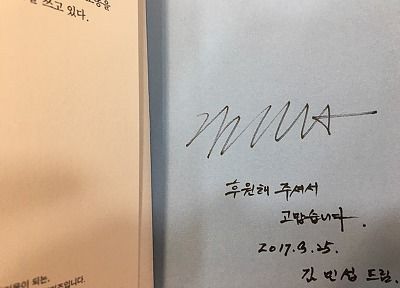 쓰고 있다.
후원해 주셔서
고맙습니다.
2017.9.25.
김민섭 드림.
되는.